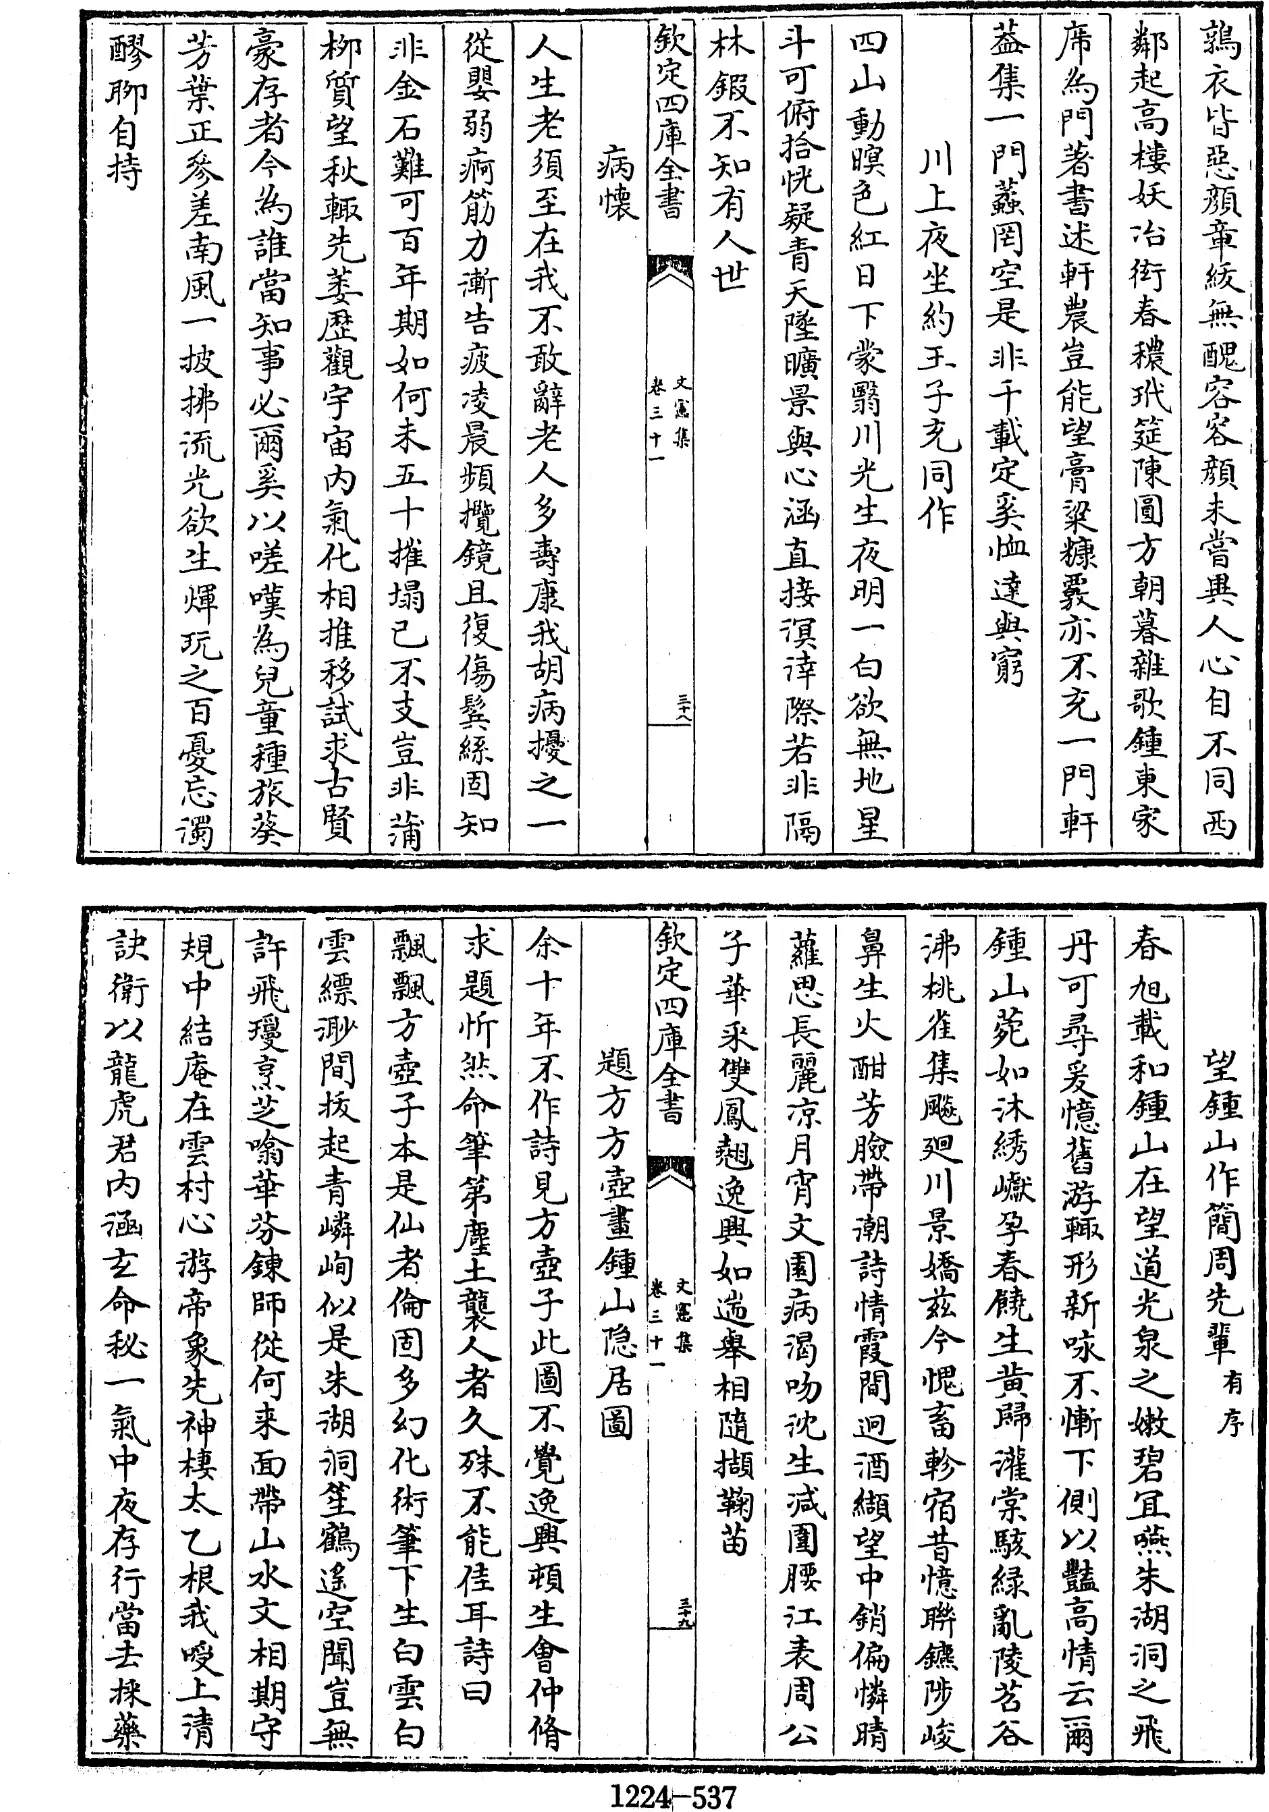 鶉衣皆惡顔章綬無醜容容顔未嘗異人心自不同西
鄰起高樓妖冶衒春穠玳筵陳圓方朝暮雜歌鍾東家
席為門著書述軒農豈能望膏粱糠覈亦不充一門軒
蓋集一門蠡罔空是非千載定奚恤達與窮
川上夜坐約王子充同作
四山動暝色紅日下蒙翳川光生夜明一白欲無地星
斗可俯拾恍疑青天墜曠景與心涵直接溟涬際若非隔
林鍜不知有人世
欽定四庫全書
文憲集
卷三十一
三十八
病懷
人生老須至在我不敢辭老人多壽康我胡病擾之一
從嬰弱痾筋力漸告疲凌晨頻攬鏡且復傷鬂絲固知
非金石難可百年期如何未五十摧塌已不支豈非蒲
柳質望秋輒先萎歴觀宇宙内氣化相推移試求古賢
豪存者今為誰當知事必爾奚以嗟嘆為兒童種旅葵
芳葉正參差南風一披拂流光欲生煇玩之百憂忘濁
醪聊自持
望鍾山作簡周先輩有序
春旭載和鍾山在望道光泉之嫩碧宜嚥朱湖洞之飛
丹可尋爰憶舊游輒形新咏不慚下俚以豔高情云爾
鍾山菀如沐綉巘孕春饒生黄歸灌棠駭緑亂陵苕谷
沸桃雀集飈廻川景嬌兹今愧畜軫宿昔憶聯鑣陟峻
鼻生火酣芳臉帶潮詩情霞間逈酒纈望中銷偏憐晴
蘿思長麗凉月宵文園病渇吻沈生减圍腰江表周公
子華采雙鳳翹逸興如遄舉相隨擷鞠苗
欽定四庫全書
文憲集
卷三十一
三十九
題方方壺畫鍾山隠居圖
余十年不作詩見方壺子此圖不覺逸興頓生會仲脩
求題忻然命筆第塵土襲人者久殊不能佳耳詩曰
飄飄方壺子本是仙者倫固多幻化術筆下生白雲白
雲縹渺間拔起青嶙峋似是朱湖洞笙鶴遥空聞豈無
許飛瓊烹芝噏華芬鍊師從何来面帶山水文相期守
規中結庵在雲村心游帝象先神棲太乙根我嘜上清
訣衛以龍虎君内涵玄命秘一氣中夜存行當去採藥
1224-537